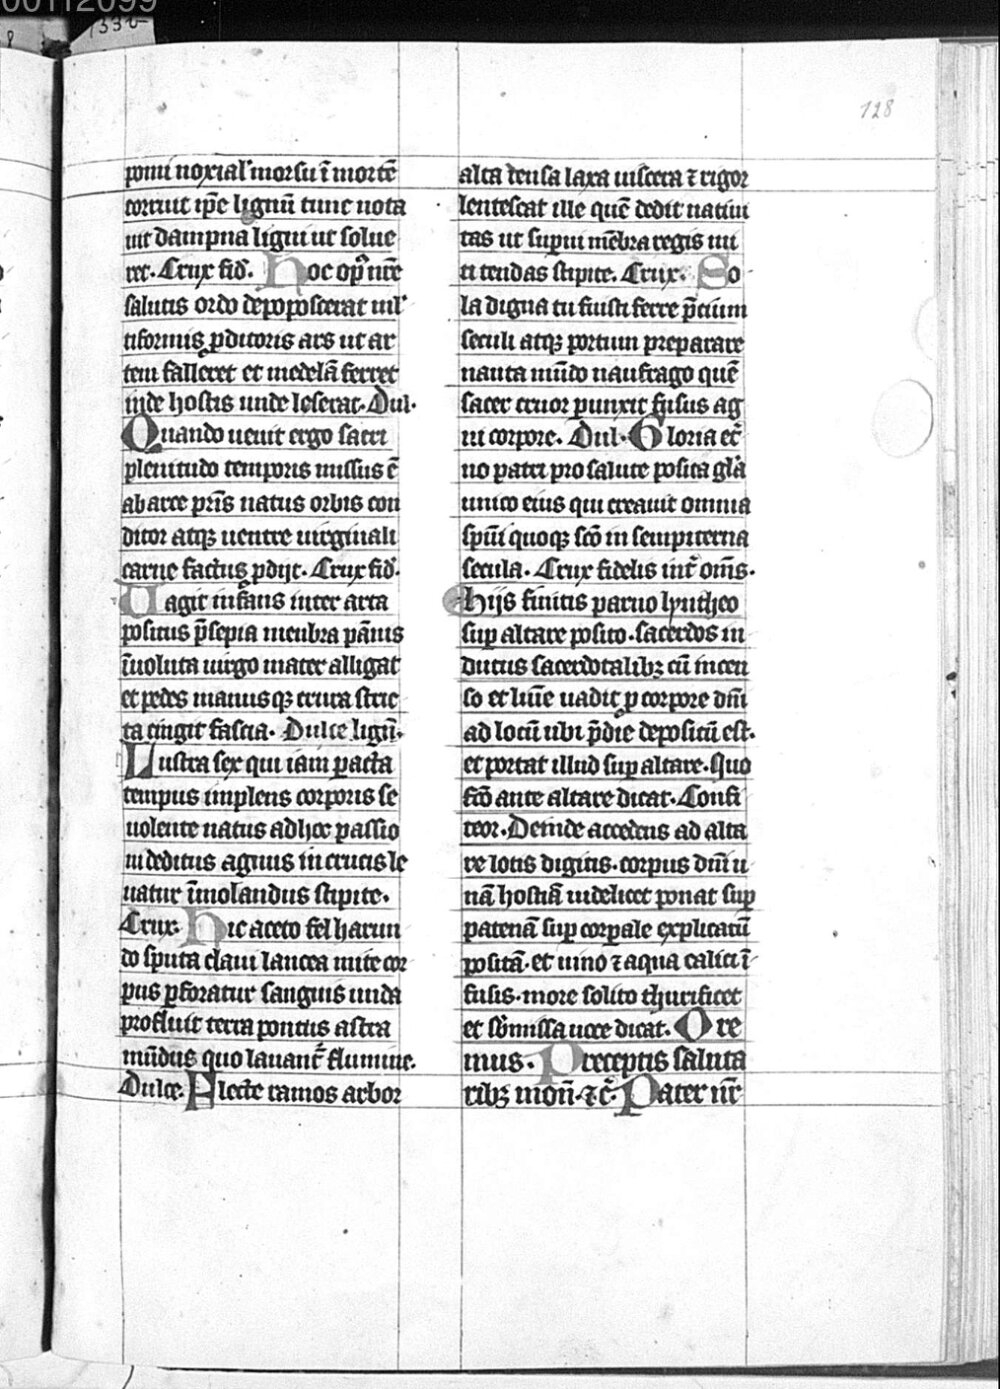 00112099
1332
128
pomi noxial' morsu ī mortē
corruit ip̄e lignū tunc nota
uit dampna ligni ut solue
ret. Crux fid'. Hoc op' nr̄e
salutis ordo depoposcerat mul
tiformis p̱ditoris ars ut ar
tem falleret et medelā ferret
inde hostis unde leserat. Dul.
Quando uenit ergo sacri
plenitudo temporis missus ē
ab arce pr̄is natus orbis con
ditor atqꝫ uentre uirginali
carne factus ꝓdijt. Crux fid'.
Uagit infans inter arta
positus p̄sepia menbra pānis
īuoluta uirgo mater alligat
et pedes manusqꝫ crura stric
ta cingit fascia. Dulce lignū.
Lustra sex qui iam ꝑacta
tempus implens corporis se
uolente natus ad hoc passio
ni deditus agnus in crucis le
uatur īmolandus stipite.
Crux. Hic aceto fel harun
do sputa claui lancea mite cor
pus ꝑforatur sanguis unda
profluit terra pontus astra
mūdus quo lauant̄ flumine.
Dulce. Flecte ramos arbor
alta densa laxa uiscera ⁊ rigor
lentescat ille quē dedit natiui
tas ut superni mēbra regis mi
ti tendas stipite. Crux. So
la digna tu fuisti ferre p̄cium
seculi atqꝫ portum preparare
nauta mūdo naufrago quē
sacer cruor ꝑunxit fusus ag
ni corpore. Dul. Gloria et̄
no patri pro salute posita gl̄a
unico eius qui creauit omnia
sp̄ui quoqꝫ sc̄o in sempiterna
secula. Crux fidelis int̄ om̄s.
Hijs finitis paruo lyntheo
suꝑ altare posito. sacerdos in
dutus sacerdotalibꝫ cū incen
so et lum̄e uadit ꝓ corpore dn̄i
ad locū ubi p̄die depositū est.
et portat illud suꝑ altare. Quo
fc̄o ante altare dicat. Confi
teor. Deinde accedens ad alta
re lotis digitis. corpus dn̄i u
nā hostiā uidelicet ponat suꝑ
patenā suꝑ corꝑale explicatū
positā. et uino ⁊ aqua calici ī
fusis. more solito thurificet
et s̄bmissa uoce dicat. Ore
mus. Preceptis saluta
ribꝫ mon̄. ⁊c̄. Pater nr̄